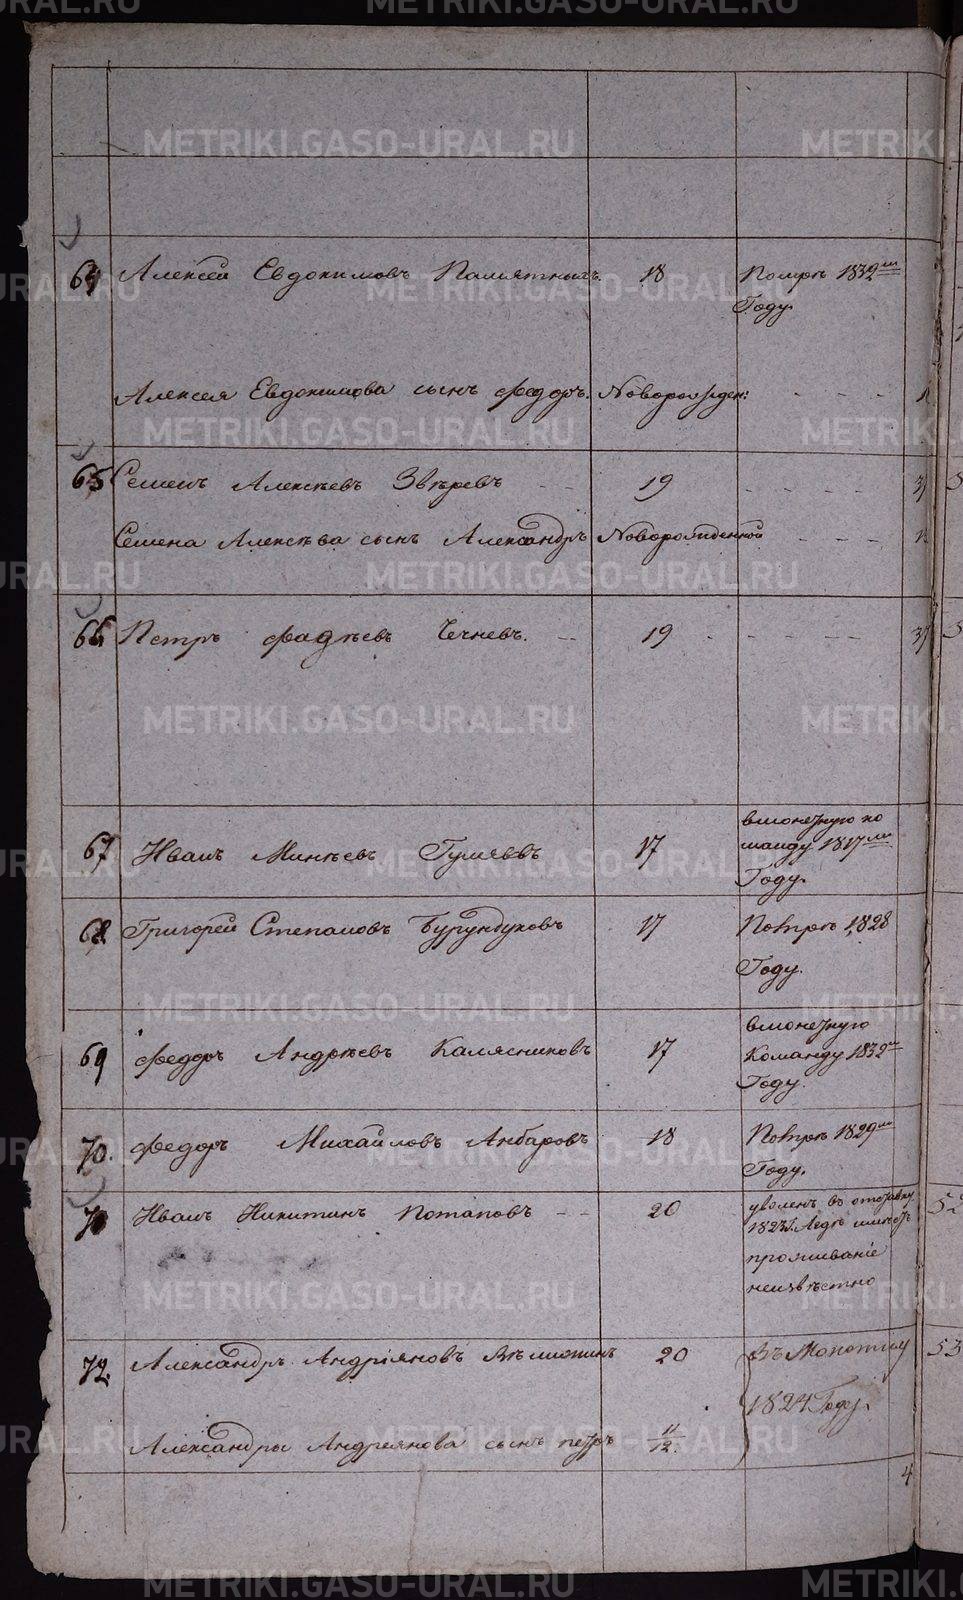 64 Алексей Евдокимовъ Памятныхъ. 18 Помре 1832го
Году.
Алексея Евдокимова сынъ Федоръ. Новорожден:
65 Семенъ Алексѣевъ Звѣревъ 19
Семена Алексѣва сынъ Александръ Новорожденной
66 Петръ Фадѣевъ Чечневъ. 19
67 Иванъ Минѣевъ 17 вмонетную ко
манду 1817го
Году.
68 Григорей Степановъ Бурундуковъ 17 Помре 1828
Году.
69 Федоръ Андрѣевъ Калясниковъ 17 вмонетную
Команду 1832го
Году.
70. Федоръ Михайловъ Анбаровъ 18 Помре 1829го
Году.
Иванъ Никитинъ Потаповъ 20 уволенъ въ отставку
имѣетъ
проживаніе
неизвѣстно
72. Александръ Андріяновъ 20 Въ
1824 Году.
Александры Андреянова сынъ петръ 11/12
4
52
53
METRIKI.GASO-URAL.RU